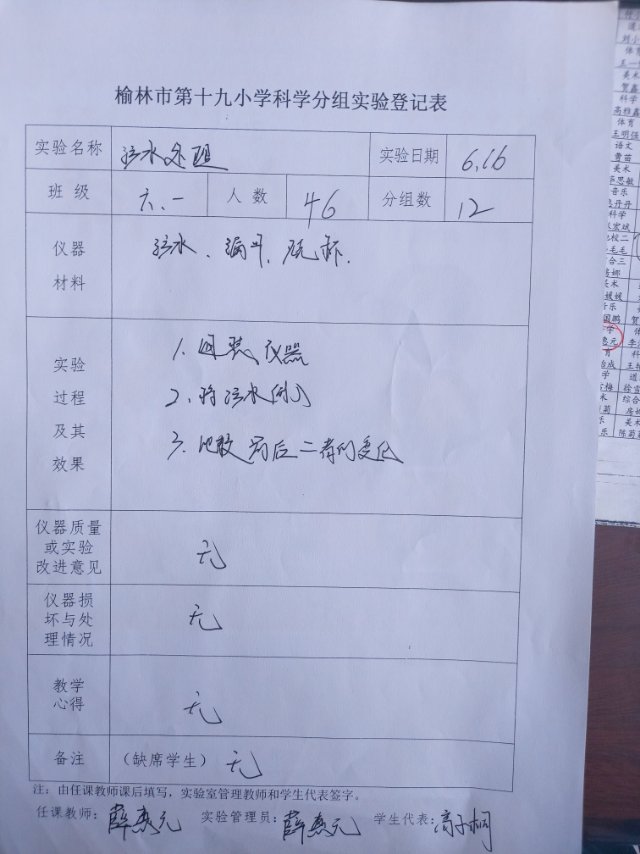 榆林市第十九小学科学分组实验登记表
实验名称 污水处理 实验日期 6.16
班级 六.一 人数 46 分组数 12
仪器材料 污水、漏斗、烧杯.
实验过程及其效果
1. 组装仪器
2. 将污水倒入
3. 比较前后二者的变化
仪器质量或实验改进意见 无
仪器损坏与处理情况 无
教学心得 无
备注 (缺席学生) 无
注：由任课教师课后填写，实验室管理教师和学生代表签字。
任课教师：薛惠元 实验管理员：薛惠元 学生代表：高子桐